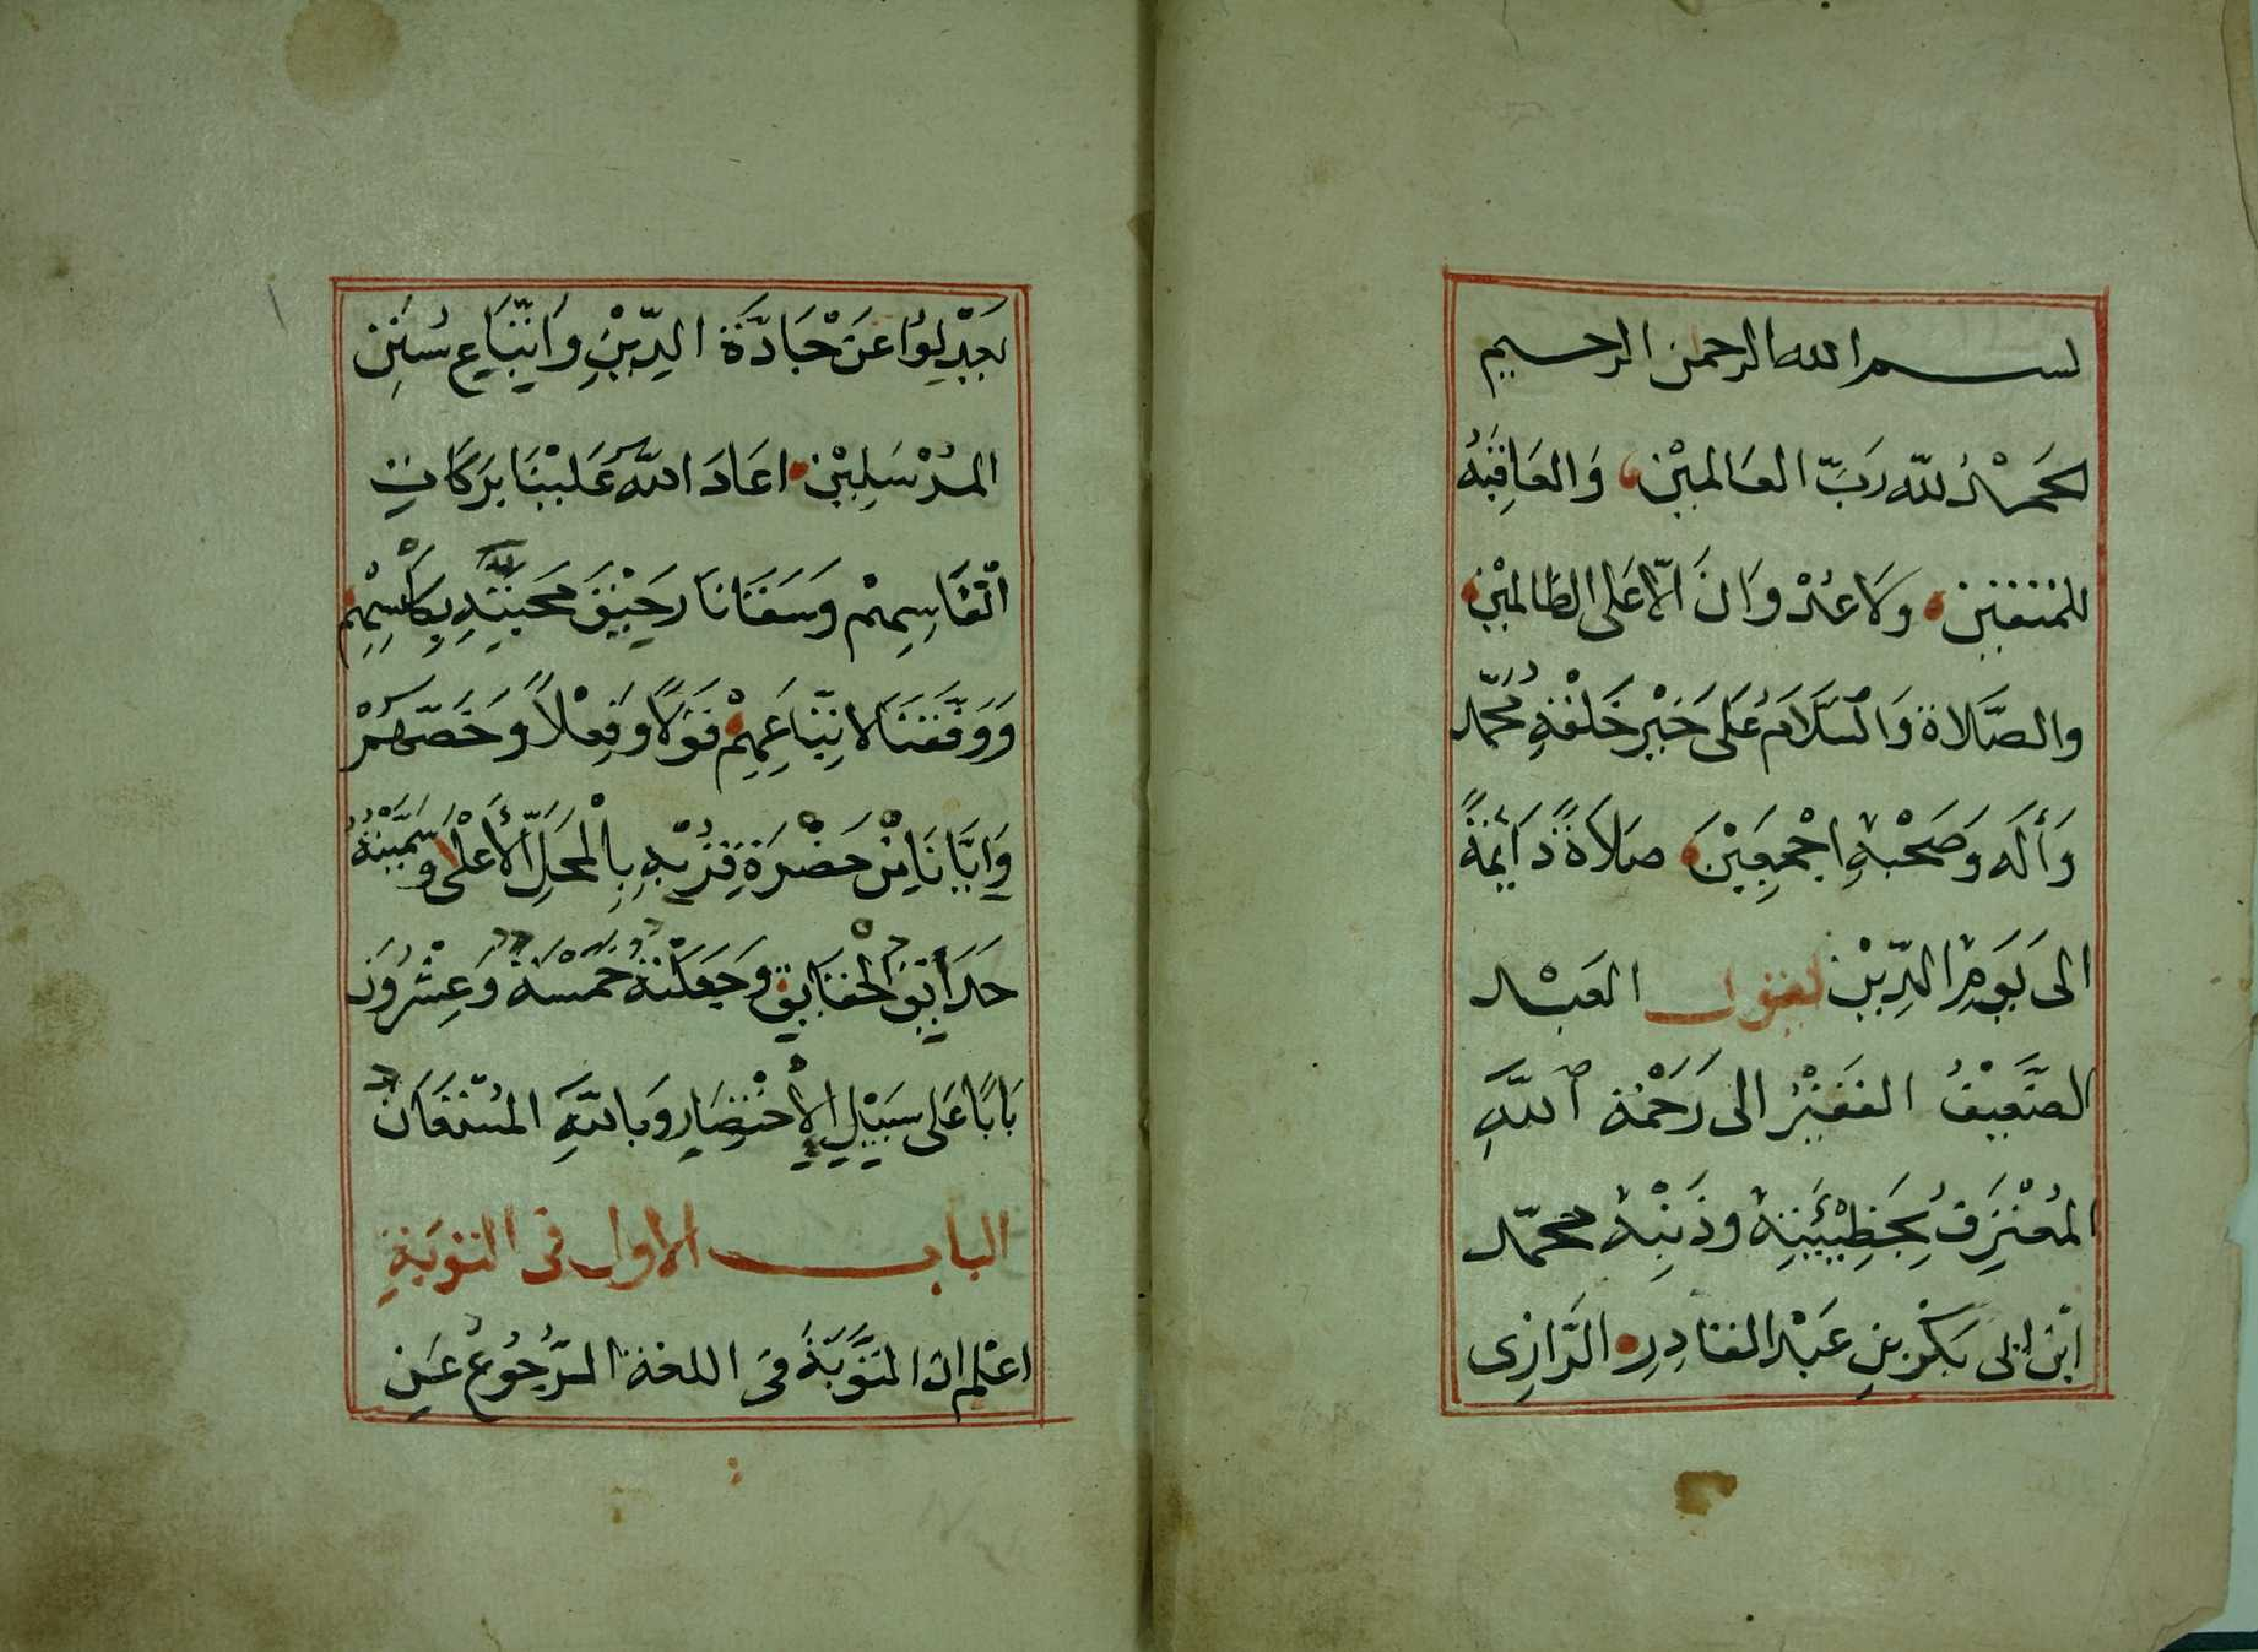 بسم الله الرحمن الرحيم
الحمد لله رب العالمين والعاقبة
للمتقين ولا عدوان الا على الظالمين
والصلاة والسلام على خير خلقه محمد
وأله وصحبه اجمعين صلاة دائمة
الى يوم الدين يقول العبد
الضعيف الفقير الى رحمة الله
المعترف بخطيئته وذنبه محمد
ابن ابى بكر بن عبد القادر الرازى
يعدلوا عن جادة الدين واتباع سنن
المرسلين اعاد الله علينا بركات
انفاسهم وسقانا رحيق محبته بكأسهم
ووفقنا لاتباعهم قولا وفعلا وخصهم
وايانا من حضرة قربه بالمحل الأعلى وسميته
حدائق الحقايق وجعلته خمسة وعشرون
بابا على سبيل الإختصار وبالله المستعان
الباب الاول فى التوبة
اعلم ان التوبة فى اللغة الرجوع عن